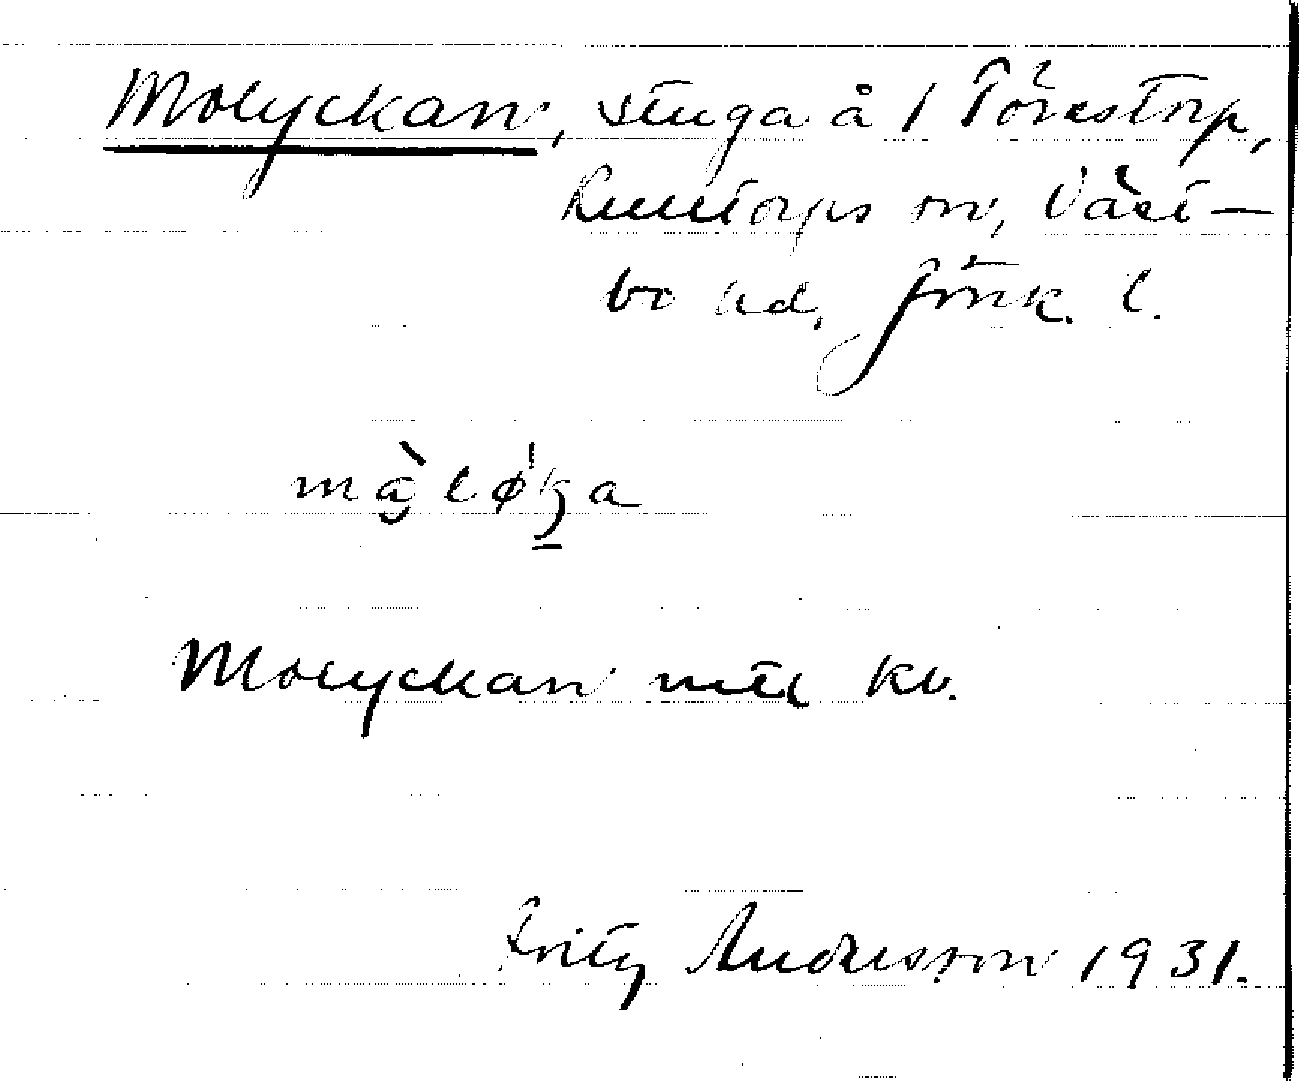 Molyckan, stuga å 1 Törestorp,
Kulltorps sn, Väst-
bo hd, Jönk. l.
må̀lø̍ka
Molyckan mtl kv.
Fritz Andersson 1931.